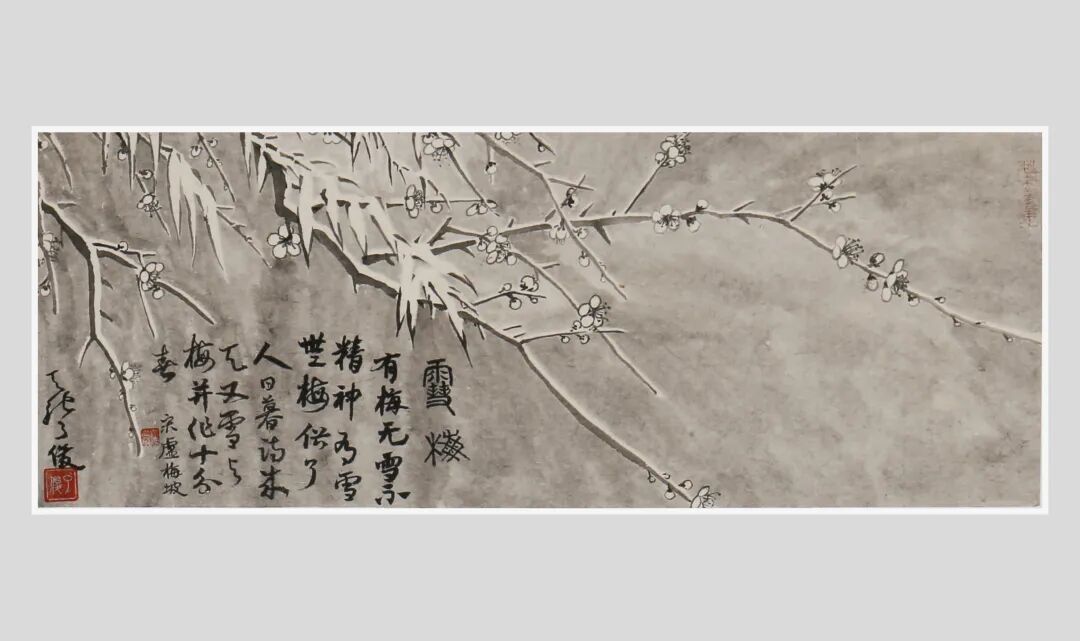 雪梅
有梅无雪不
精神有雪
無梅俗了
人日暮诗成
天又雪与
梅并作十分
春
宋盧梅坡